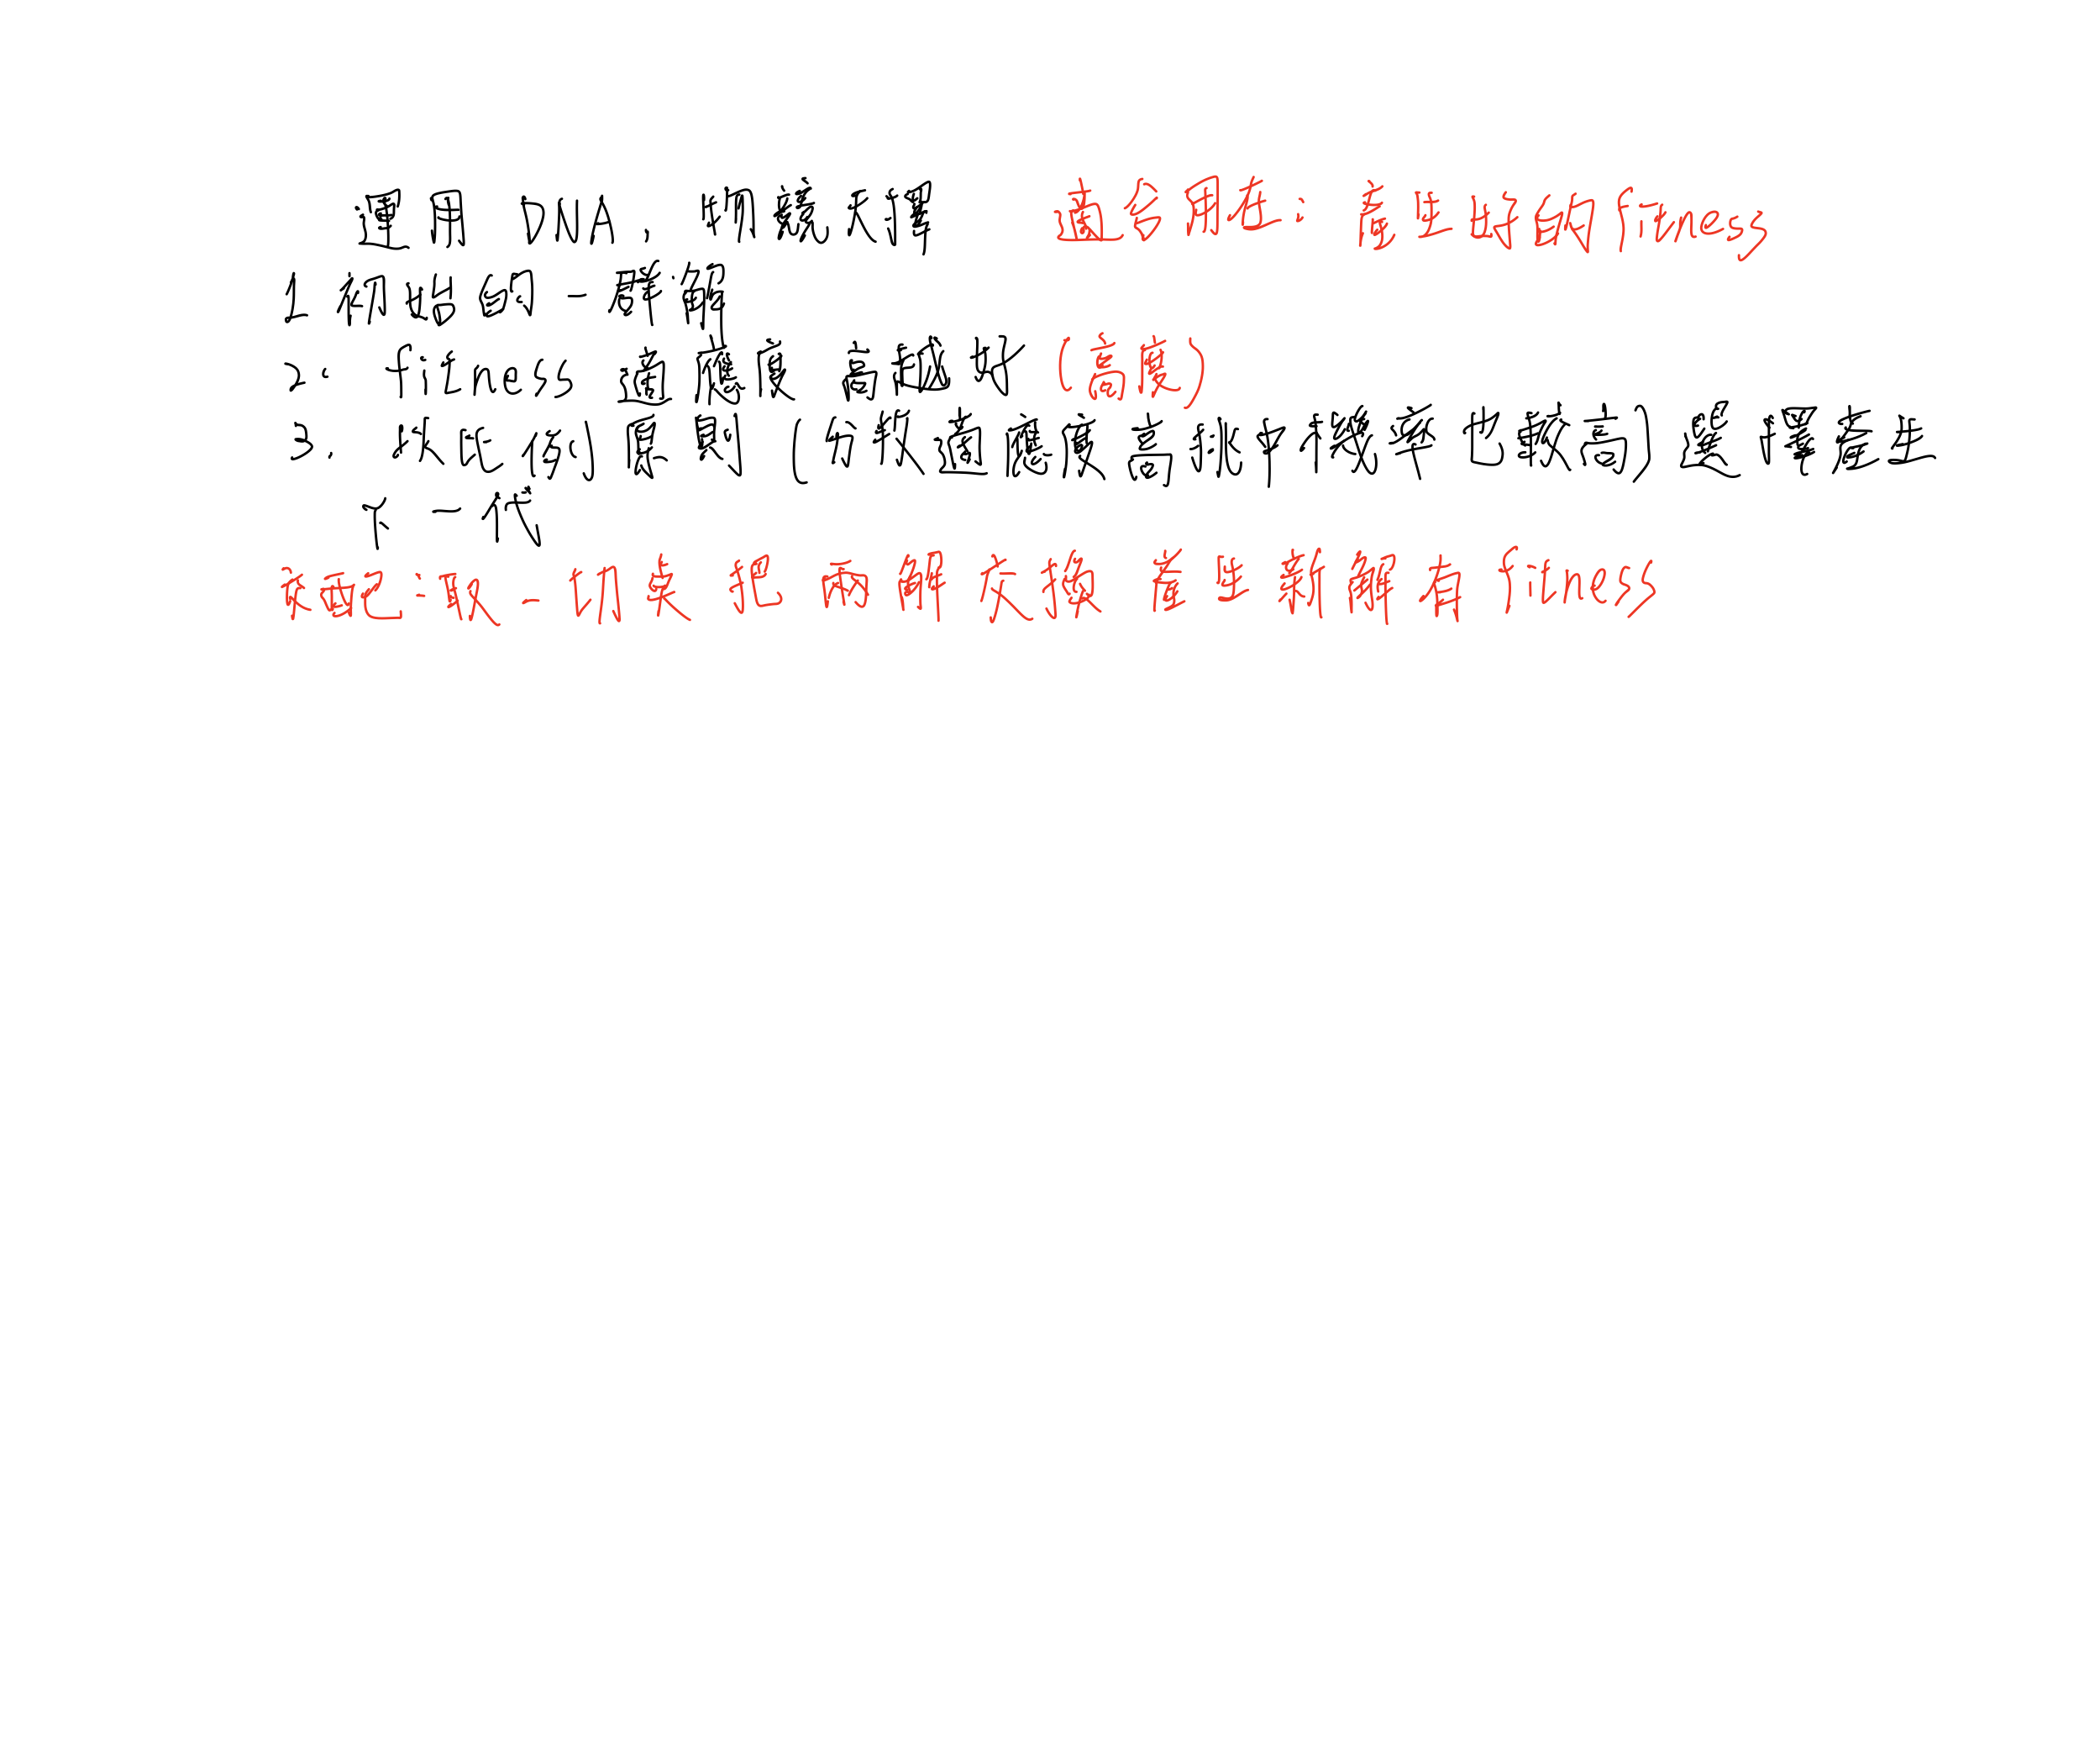 運用DNA, 物競天擇 適合用在: 產生好的fitness
1. 初始的一群解
2. fitness 適應度 高越好 (高度)
3. 大化的原則 (分數適應度高抽中機率也越高) 選擇量去
下一代
交配: 取一切点把 兩解 交換 產生新解有 fitness